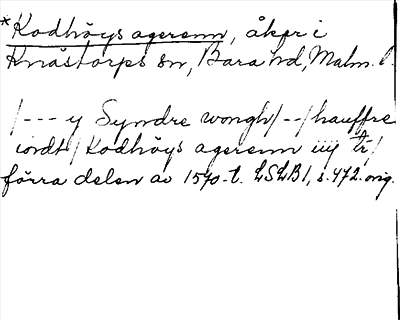 *Kodhöys agerenn, åker i
Knästorps sn, Bara hd, Malm. l.
/--- y Syndre wongh/--/hauffre
iordt/Kodhöys agerenn iiij tr/
förra delen av 1570-t. LSLB1, s.472. orig.